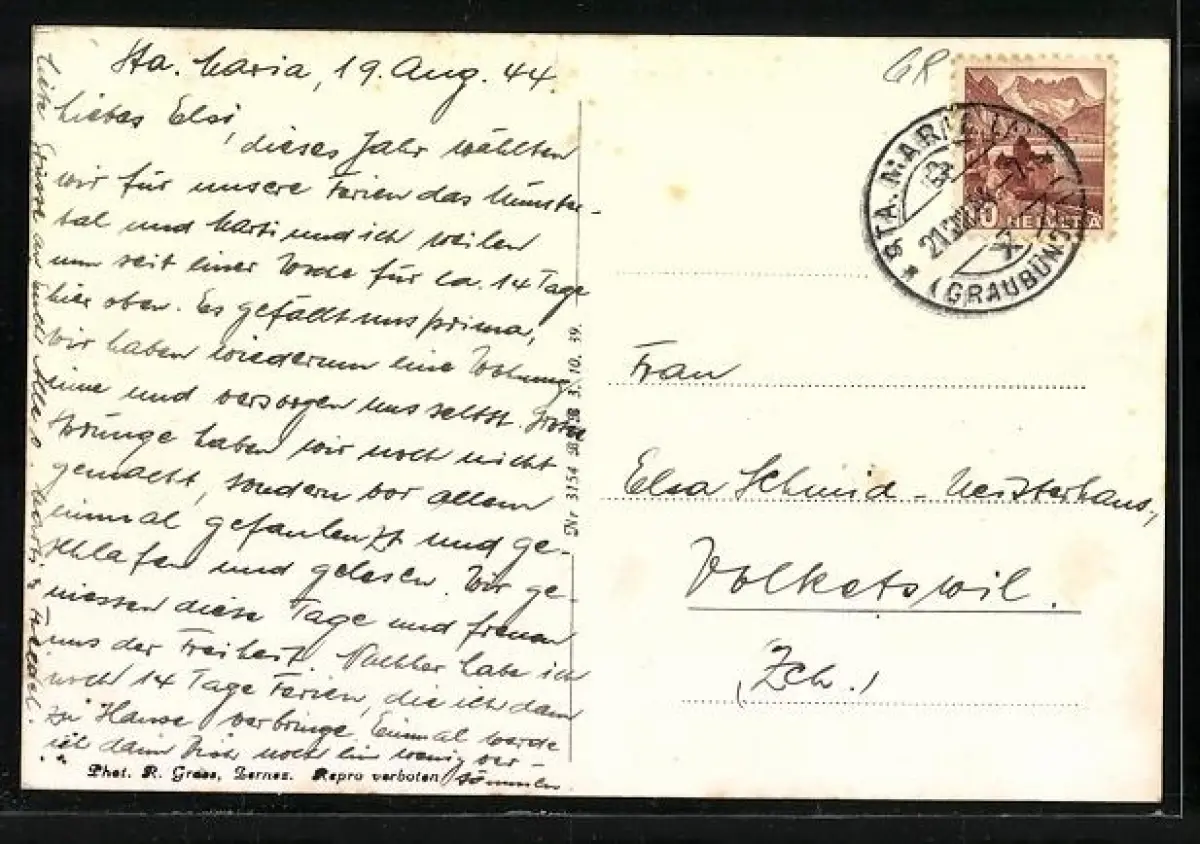 Sta. Maria, 19. Aug. 44.
Liebes Elsi,
dieses Jahr wählten
wir für unsere Ferien das Münster-
tal und Marti und ich weilen
nun seit einer Woche für ca. 14 Tage
hier oben. Es gefällt uns prima,
wir haben wiederum eine Wohnung
inne und versorgen uns selbst. Grosse
Sprünge haben wir noch nicht
gemacht, sondern vor allem
einmal gefaulenzt und ge-
schlafen und gelesen. Wir ge-
niessen diese Tage und freuen
uns der Freiheit. Nachher habe ich
noch 14 Tage Ferien, die ich dann
zu Hause verbringe. Einmal werde
ich dann noch ein wenig ver-
sömmeln
Liebe Grüsse an Euch Alle
Marti & Friedel.
Phot. R. Grass, Zernez. Repro verboten
Nr 3154 3. 10. 39.
GR
STA. MARIA
21.
(GRAUBÜND.)
HELVETIA
Frau
Elsa Schmid-Meisterhans,
Volketswil.
(Zch.)